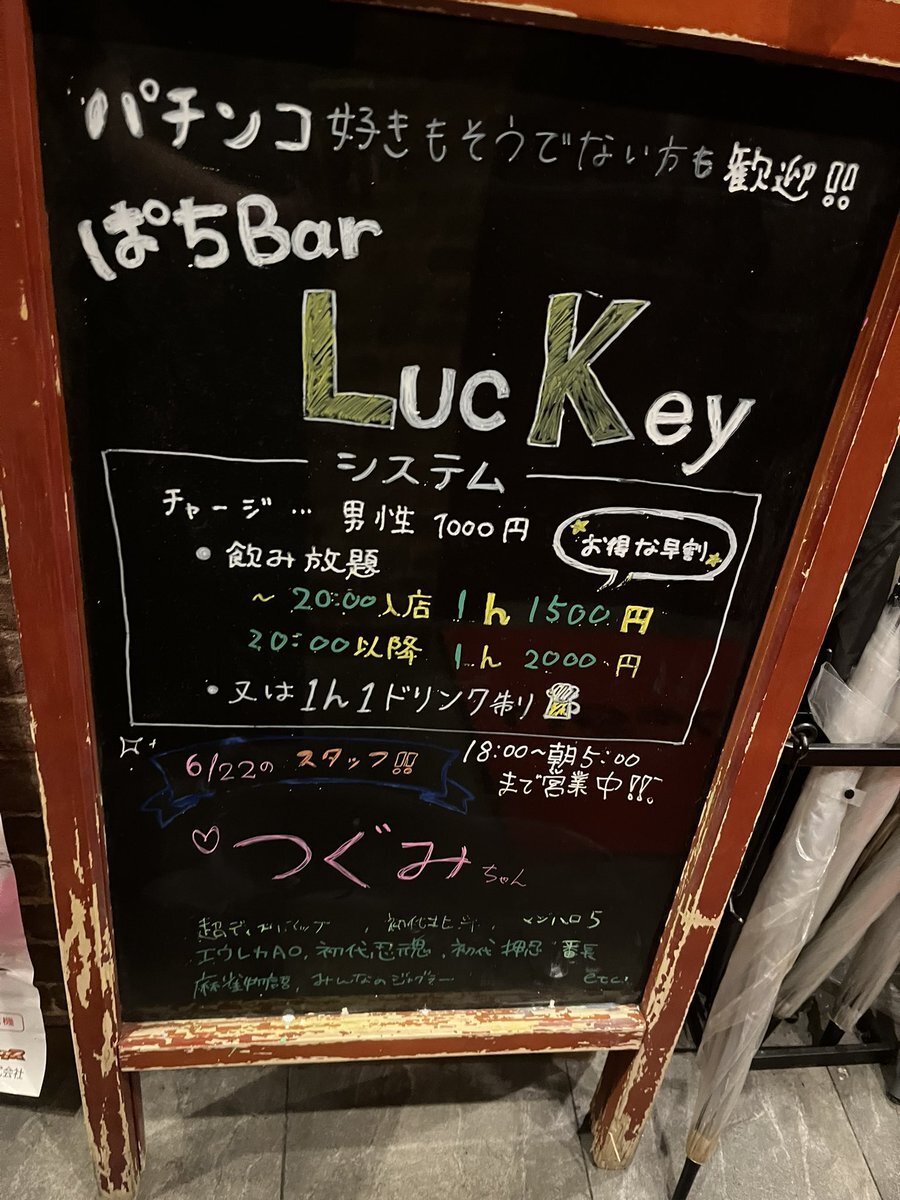 パチンコ好きもそうでない方も歓迎!!
ぱちBar
LucKey
システム
チャージ… 男性 1000円
お得な早割
・飲み放題
～20:00入店 1h 1500円
20:00以降 1h 2000円
・又は1h1ドリンク制
6/22の スタッフ!!
18:00～朝5:00
まで営業中!!
♡つぐみちゃん
超ディスクアップ, 初代北斗, マジハロ5
エウレカAO, 初代忍魂, 初代 押忍 番長
麻雀物語, みんなのジャグラー etc.
機
式会社